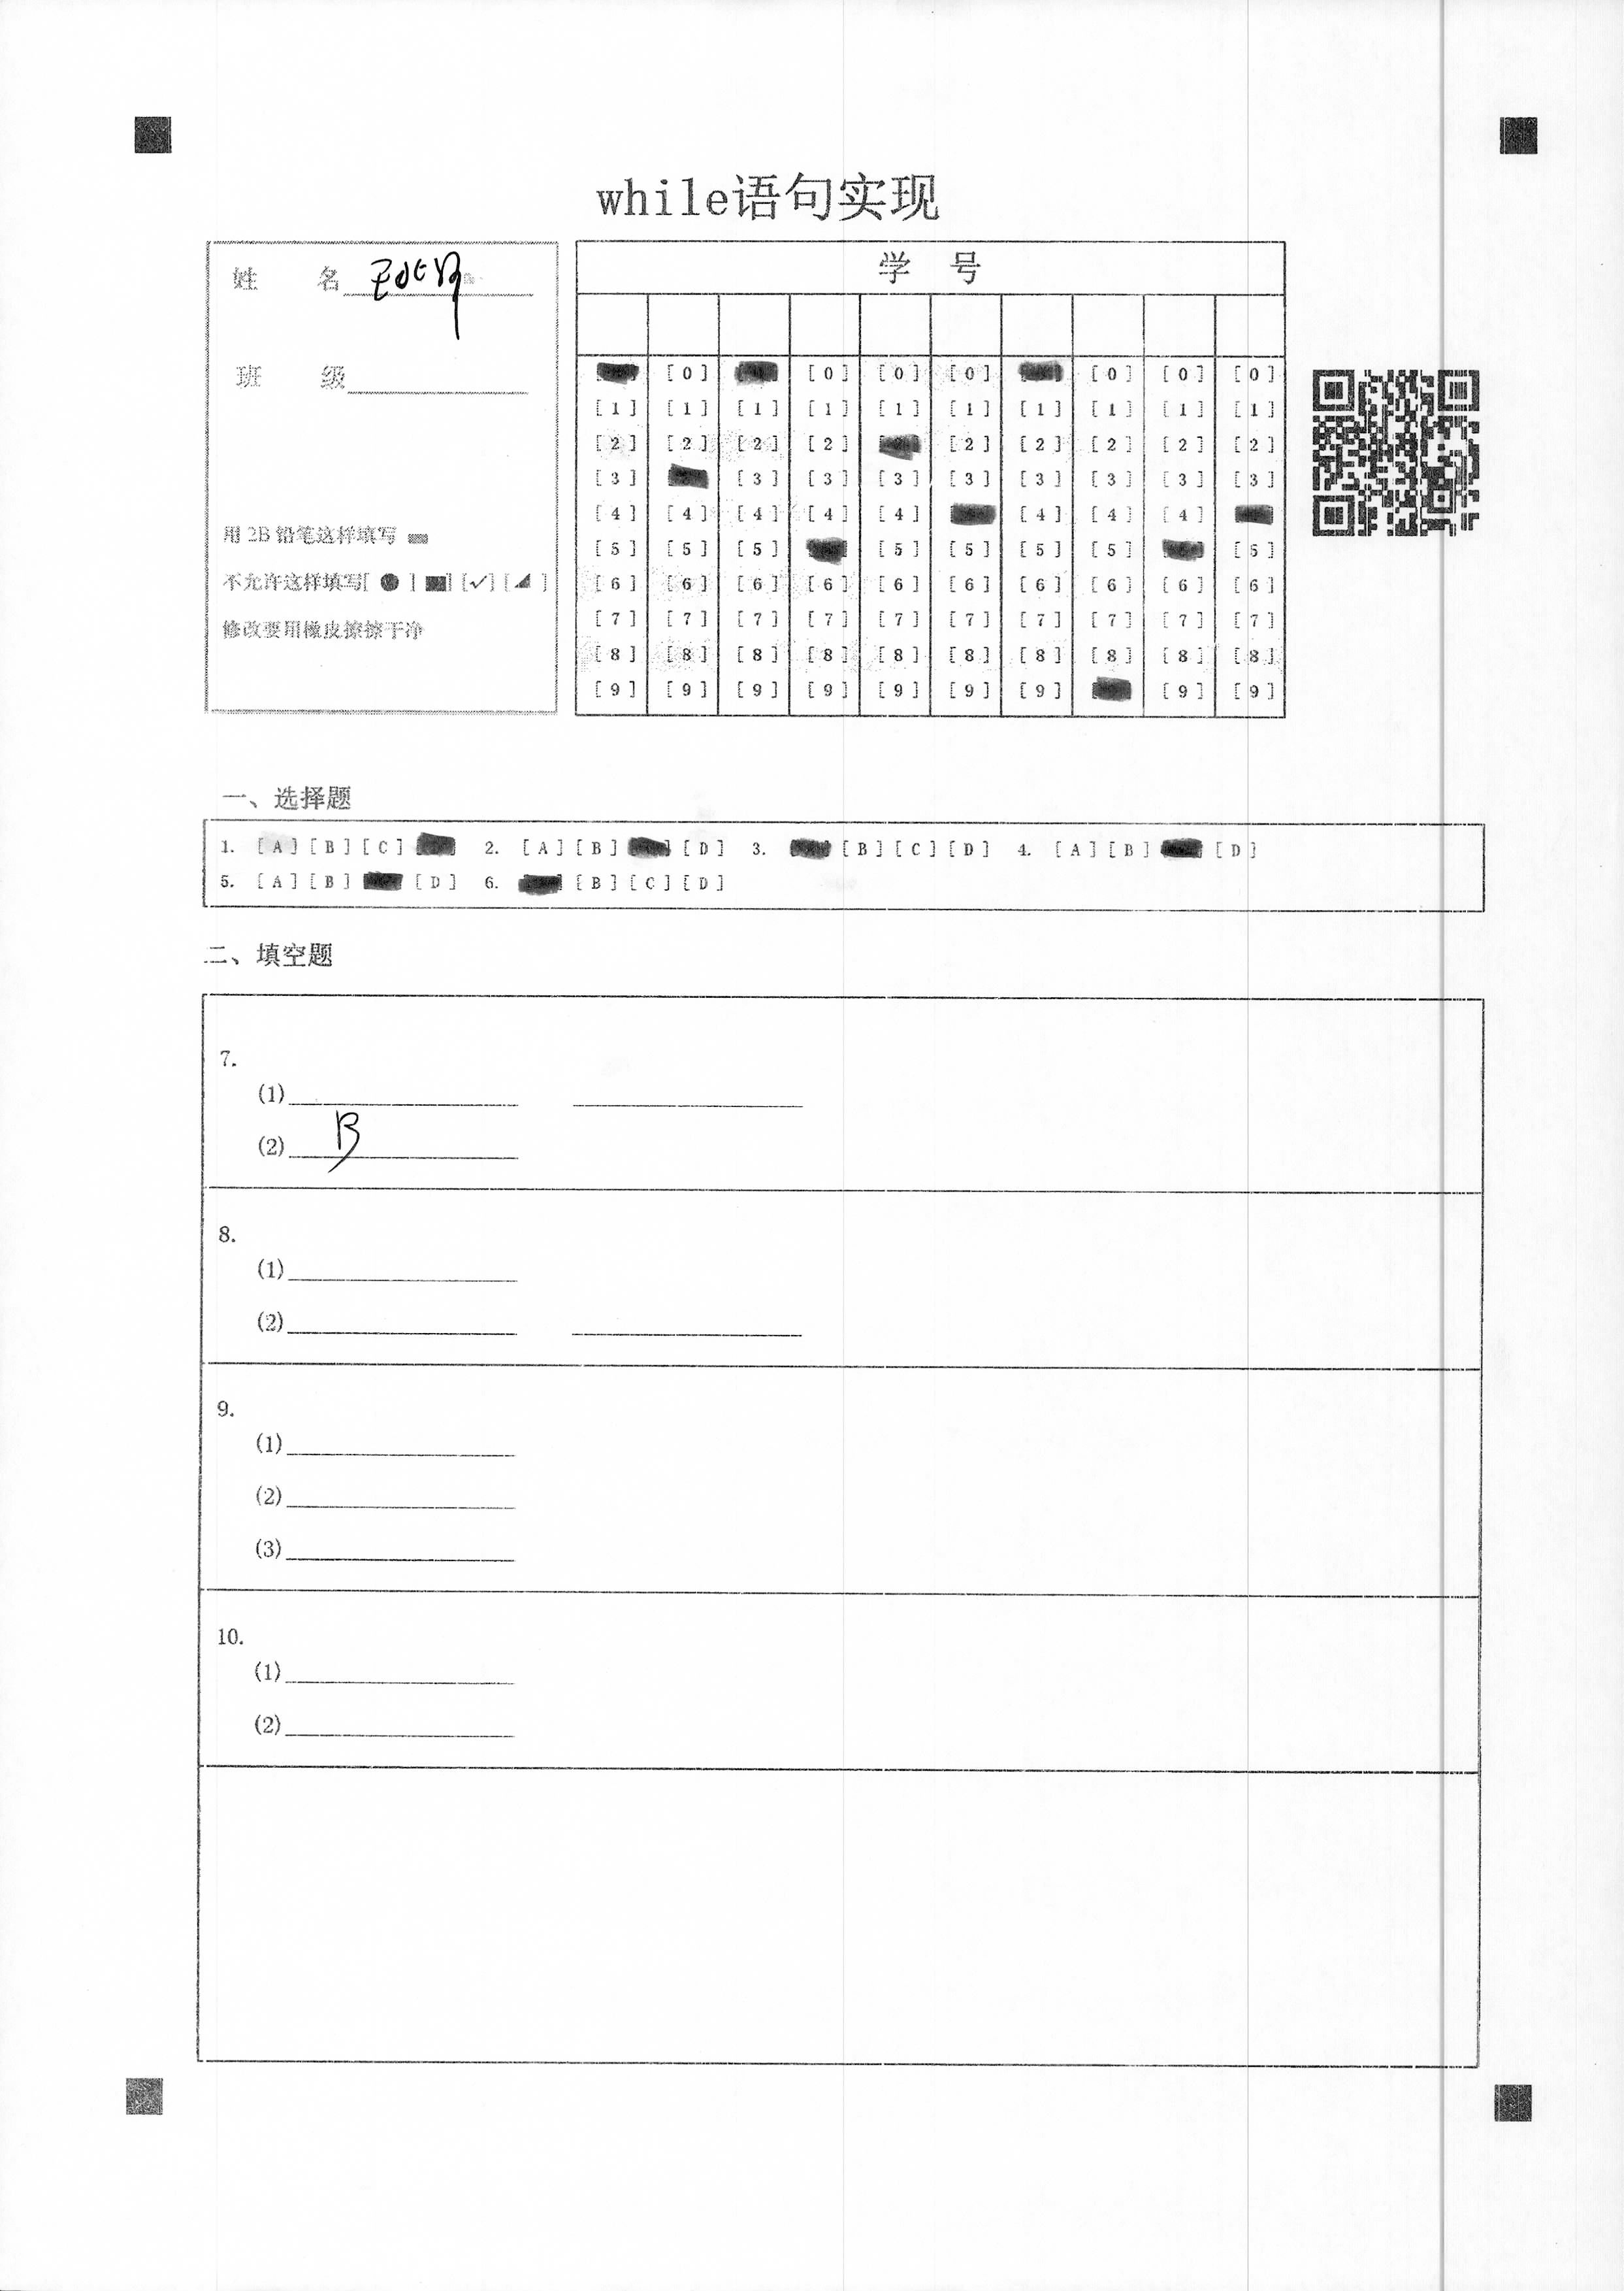 while语句实现
姓 名
班 级
用 2B 铅笔这样填写
不允许这样填写[ ● ] [■] [✓] [◢ ]
修改要用橡皮擦擦干净
学 号
[0] [0] [0] [0] [0] [0] [0]
[1] [1] [1] [1] [1] [1] [1] [1] [1] [1]
[2] [2] [2] [2] [2] [2] [2] [2] [2]
[3] [3] [3] [3] [3] [3] [3] [3] [3]
[4] [4] [4] [4] [4] [4] [4] [4]
[5] [5] [5] [5] [5] [5] [5] [5]
[6] [6] [6] [6] [6] [6] [6] [6] [6] [6]
[7] [7] [7] [7] [7] [7] [7] [7] [7] [7]
[8] [8] [8] [8] [8] [8] [8] [8] [8] [8]
[9] [9] [9] [9] [9] [9] [9] [9] [9]
一、选择题
1. [A] [B] [C] 2. [A] [B] [D] 3. [B] [C] [D] 4. [A] [B] [D]
5. [A] [B] [D] 6. [B] [C] [D]
二、填空题
7.
(1)
(2) B
8.
(1)
(2)
9.
(1)
(2)
(3)
10.
(1)
(2)